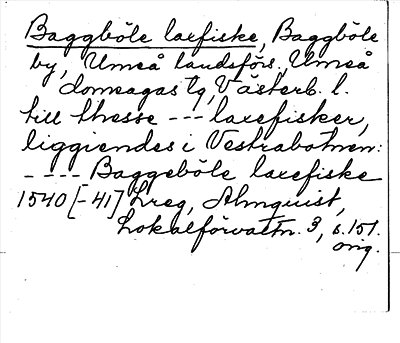 Baggböle laxfiske, Baggböle
by, Umeå landsförs., Umeå
domsagas tg, Västerb. l.
till thesse --- laxefisker,
liggiendes i Vestrabotnen:
---- Baggeböle laxefiske
1540[-41] Lreg, Almquist,
Lokalförvaltn. 3, s. 151.
orig.